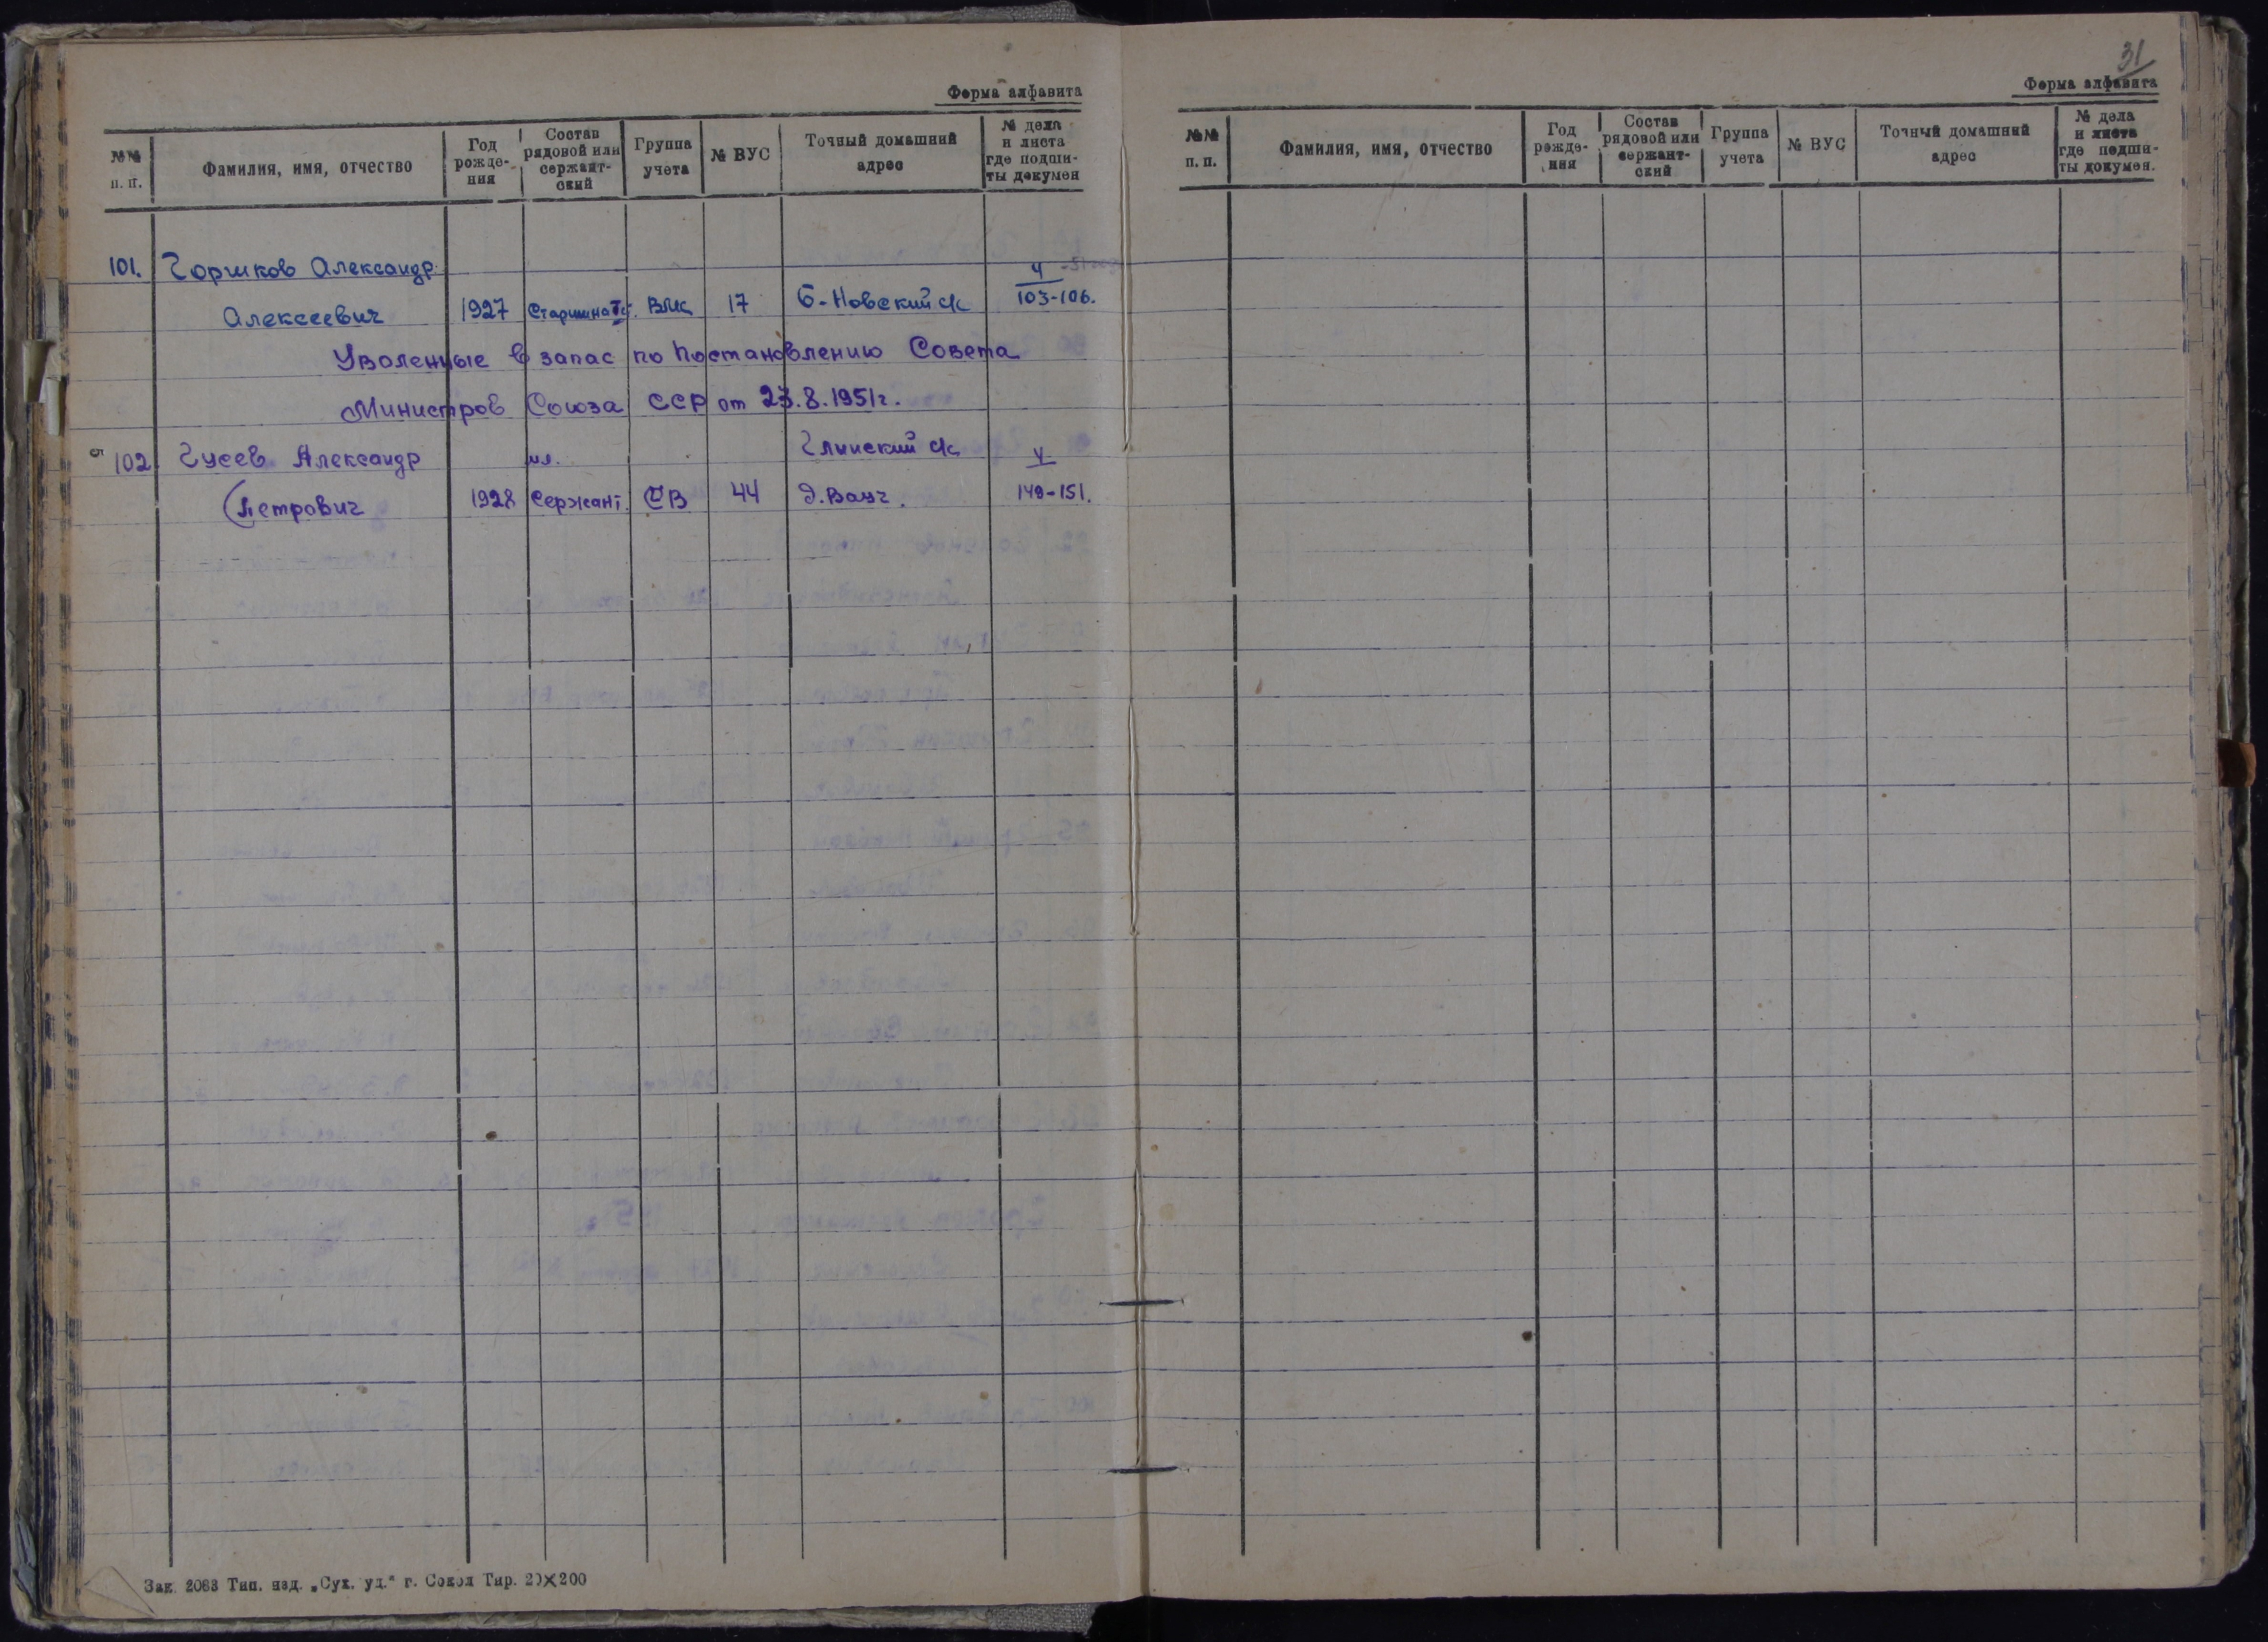 Форма алфавита
№№ п. п.
Фамилия, имя, отчество
Год рожде-ния
Состав рядовой или сержант-ский
Группа учета
№ ВУС
Точный домашний адрес
№ дела и листа где подши-ты докумен
101. Горшков Александр 4
Алексеевич 1927 Старшина 17 Б-Новский с/с 103-106.
Уволенные в запас по Постановлению Совета
Министров Союза ССР от 23.8.1951г.
102 Гусев Александр мл. Глинский с/с
Петрович 1928 Сержант СВ 44 149-151.
Зак. 2083 Тип. изд. „Сух. уд.“ г. Сокол Тир. 20×200
31
Форма алфавита
№№ п. п.
Фамилия, имя, отчество
Год рожде-ния
Состав рядовой или сержант-ский
Группа учета
№ ВУС
Точный домашний адрес
№ дела и листа где подши-ты докумен.